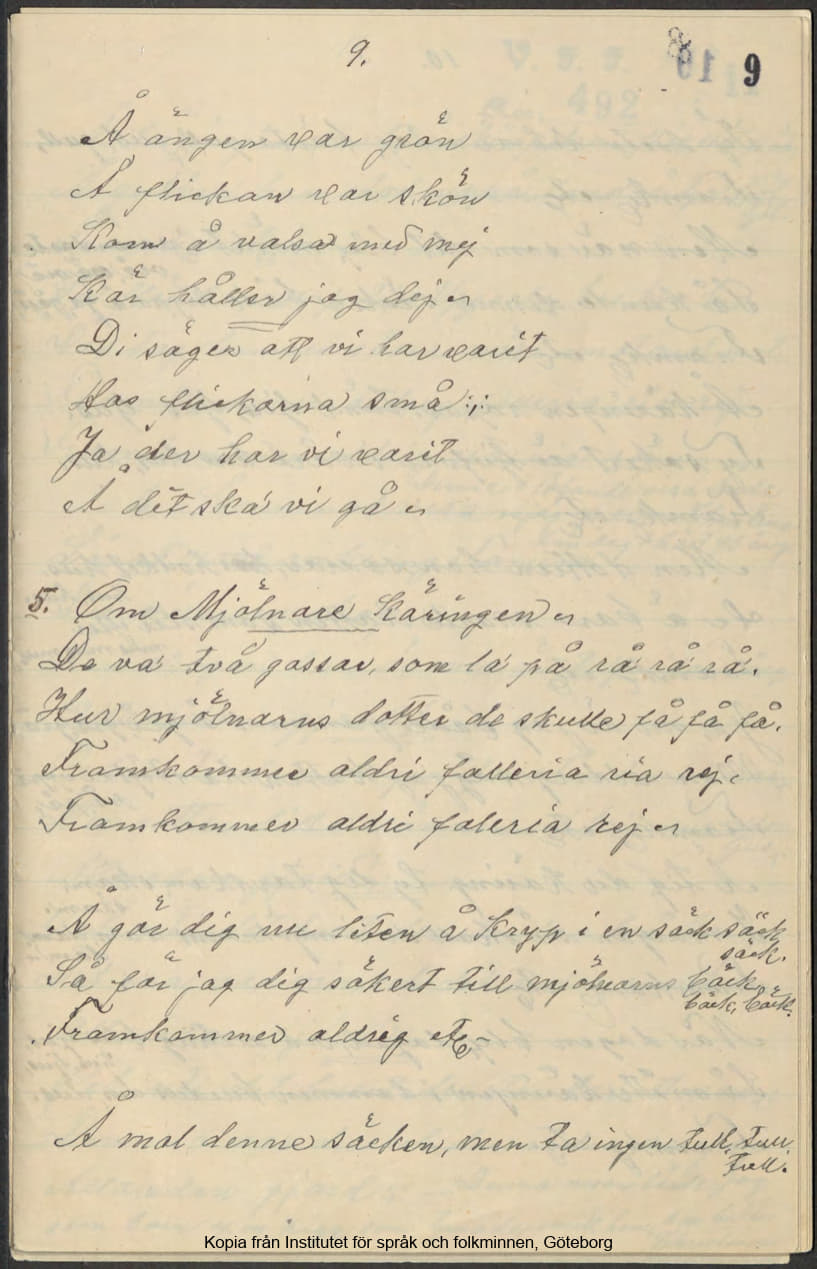 9.
9
Å ängen var grön
Å flickan var skön
Kom å valsa med mej
Kär håller jag dej
Di säger att vi har varit
Hos flickorna små :;:
Ja der har vi varit
Å dit ska vi gå
5. Om Mjölnare Käringen
De va två gossar, som la på rå rå rå.
Hur mjölnarns dotter de skulle få få få.
Framkommer aldri falleria ria rej.
Framkommer aldri faleria rej
Å gör dig nu liten å kryp i en säck säck
säck.
Så för jag dig säkert till mjölnarns bäck
bäck, bäck.
Framkommer aldrig etc
Å mal denne säcken, men ta ingen tull, tull
tull.
Kopia från Institutet för språk och folkminnen, Göteborg